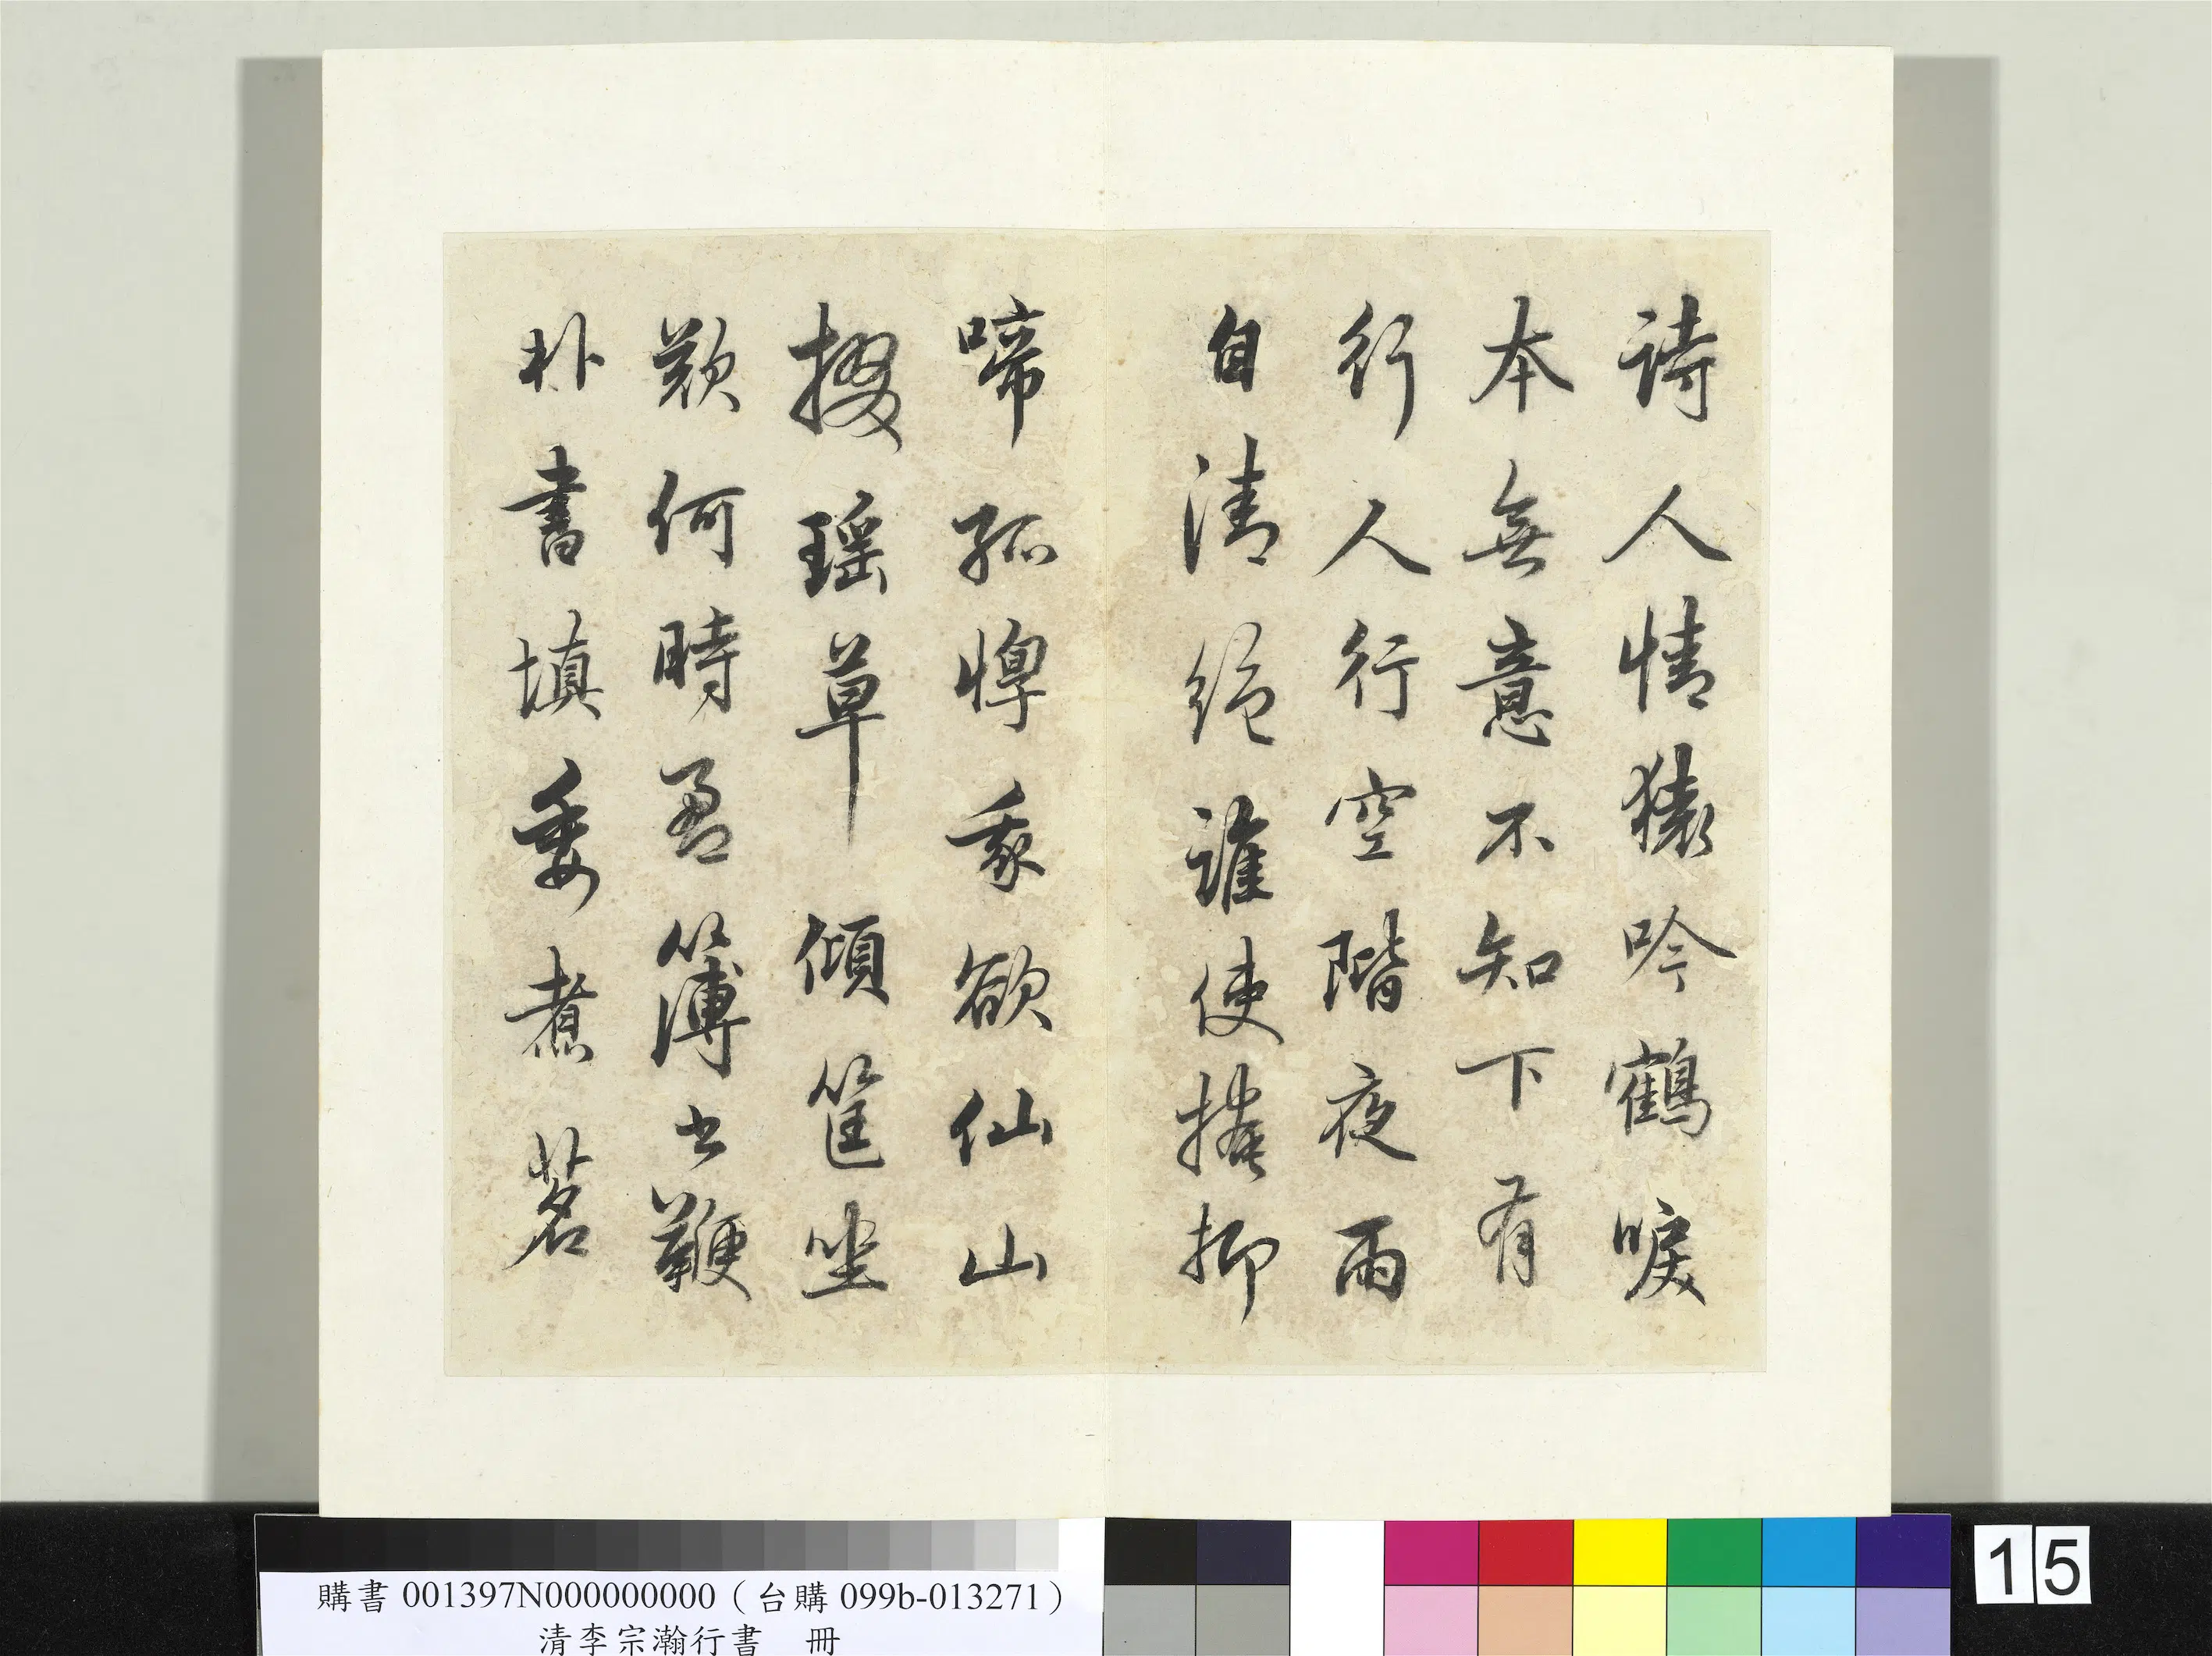 詩人情猿吟鶴唳
本無意不知下有
行人行空階夜雨
自清絕誰使掩抑
啼孤惸我欲仙山
掇瑤草傾筐坐
歎何時盈簿書鞭
朴晝填委煮茗
購書 001397N000000000（台購 099b-013271）
清李宗瀚行書 冊
15